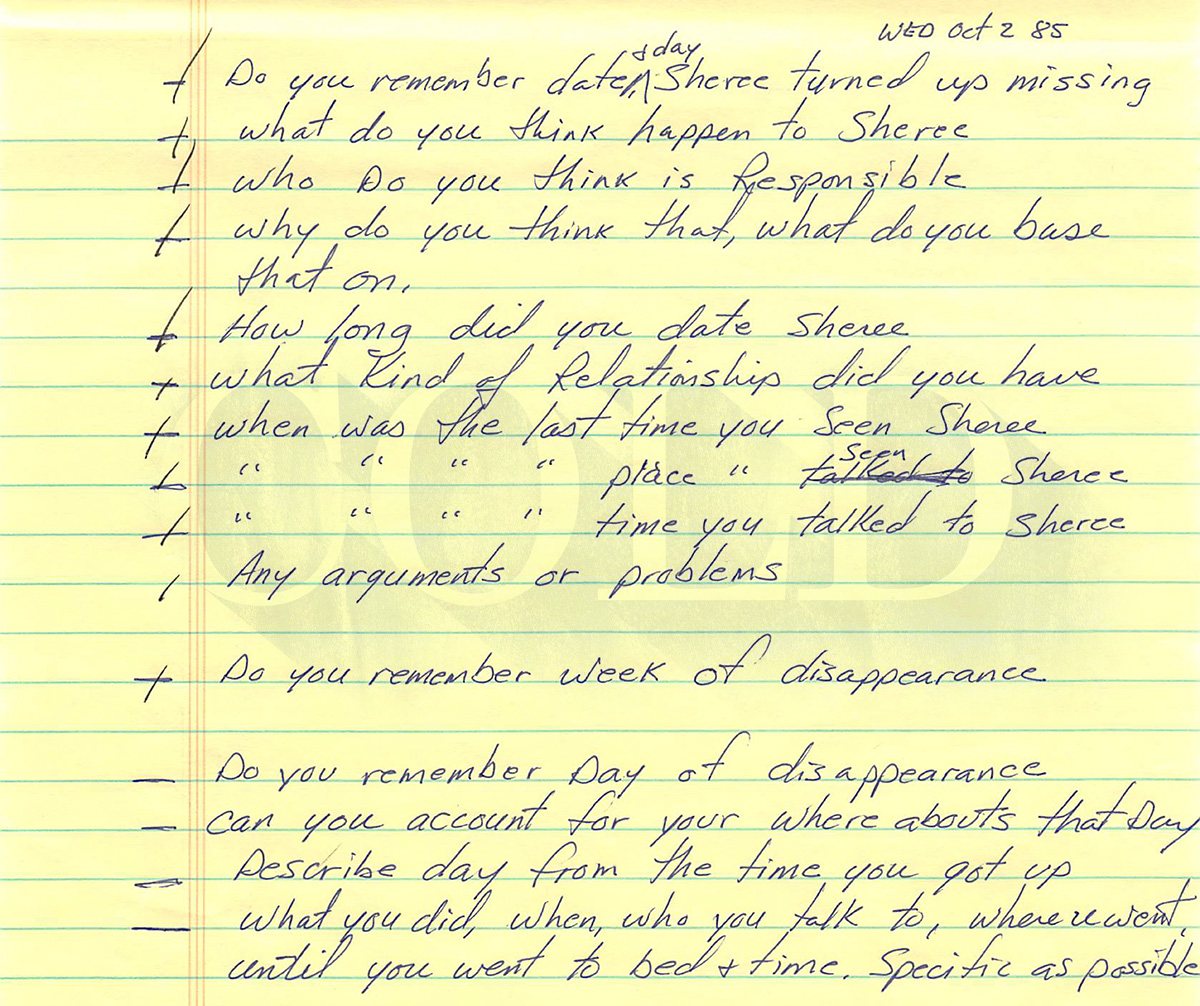 WED Oct 2 85
Do you remember date & day Sheree turned up missing
what do you think happen to Sheree
who Do you think is Responsible
why do you think that, what do you base
that on.
How long did you date Sheree
what Kind of Relationship did you have
when was the last time you Seen Sheree
" " " " place " Seen talked to Sheree
" " " " time you talked to Sheree
Any arguments or problems
Do you remember week of disappearance
Do you remember Day of disappearance
can you account for your where abouts that Day
Describe day from the time you got up
what you did, when, who you talk to, where u went,
until you went to bed & time. Specific as possible
COLD